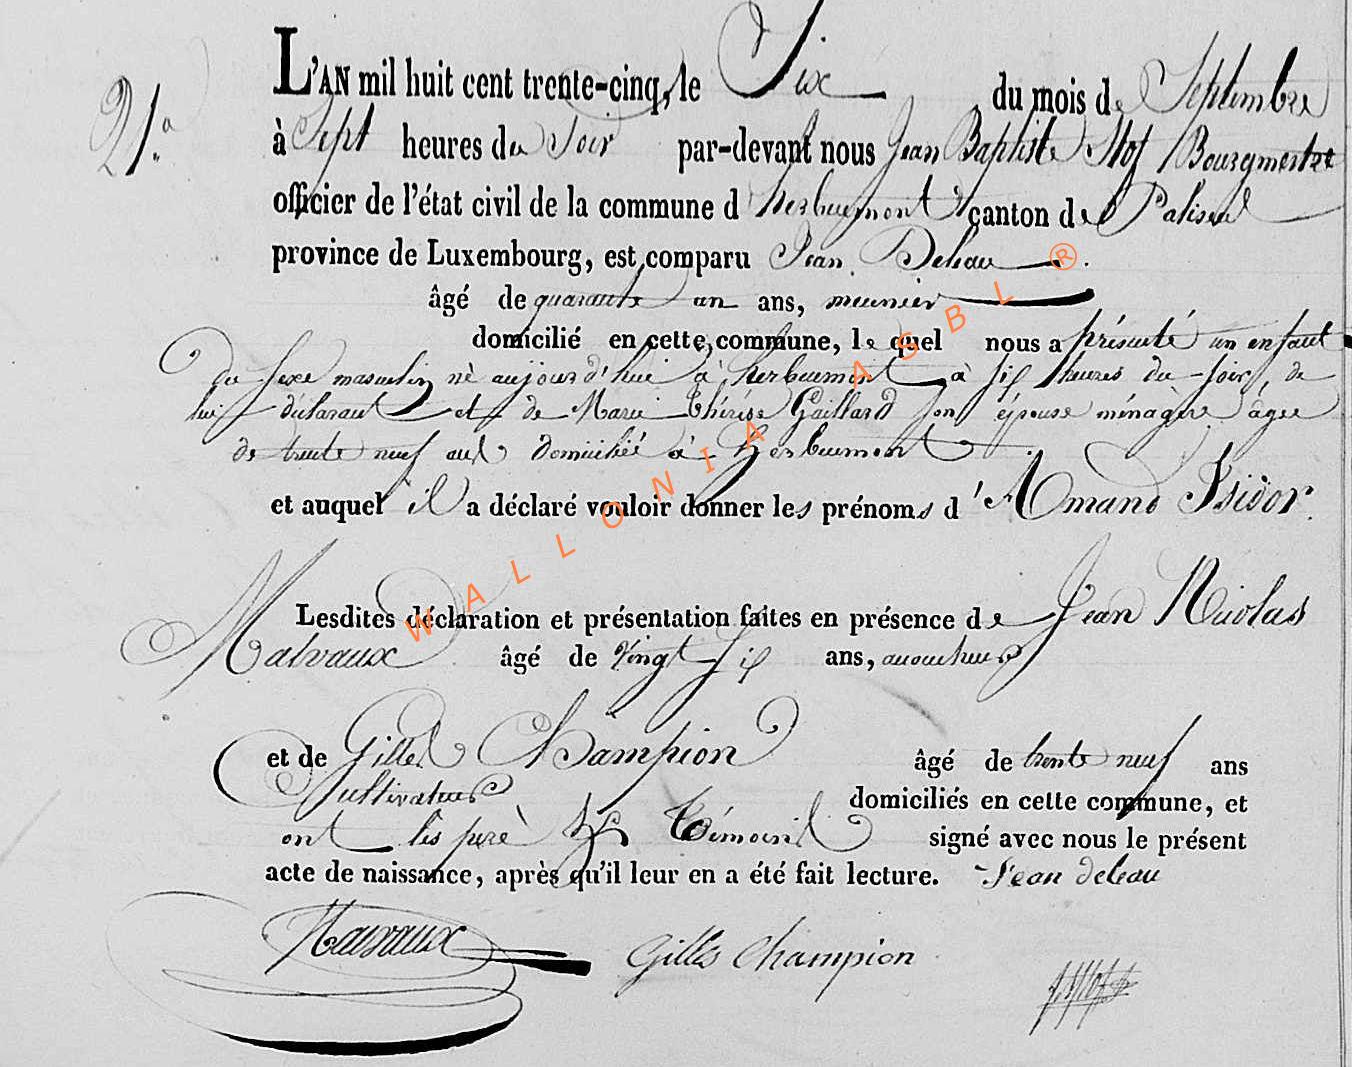 21.a
L'AN mil huit cent trente-cinq, le Six du mois de Septembre
à Sept heures du Soir par-devant nous Jean Baptiste Stof Bourgmestre
officier de l'état civil de la commune d'herbeumont canton de Paliseul
province de Luxembourg, est comparu Jean Deleau
âgé de quarante un ans, meunier
domicilié en cette commune, le quel nous a présenté un enfant
du sexe masculin né aujourd'hui à herbeumont à six heures du soir, de
lui déclarant et de Marie Thérèse Gaillard son épouse ménagère âgée
de trente neuf ans domiciliée à herbeumont
et auquel il a déclaré vouloir donner les prénoms d'Amand Isidor.
Lesdites déclaration et présentation faites en présence de Jean Nicolas
Malvaux âgé de vingt six ans, accoucheur
et de Gilles Champion âgé de trente neuf ans
Cultivateur domiciliés en cette commune, et
ont les père et témoins signé avec nous le présent
acte de naissance, après qu'il leur en a été fait lecture. Jean deleau
Malvaux Gilles Champion
WALLONIA ASBL ®